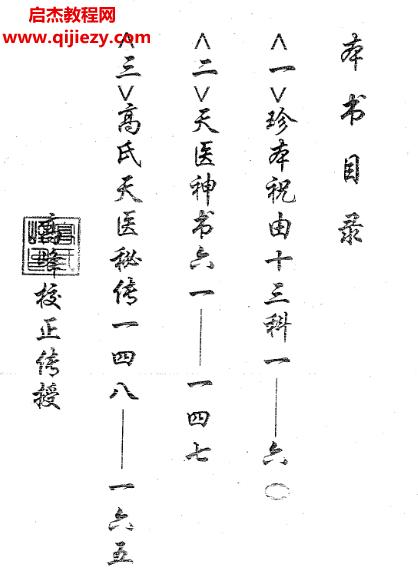 启杰教程网
www.qijiezy.com
本书目录
<一>珍本祝由十三科一——六〇
<二>天医神书六一——一四七
<三>高氏天医秘传一四八——一六五
高峰校正传授